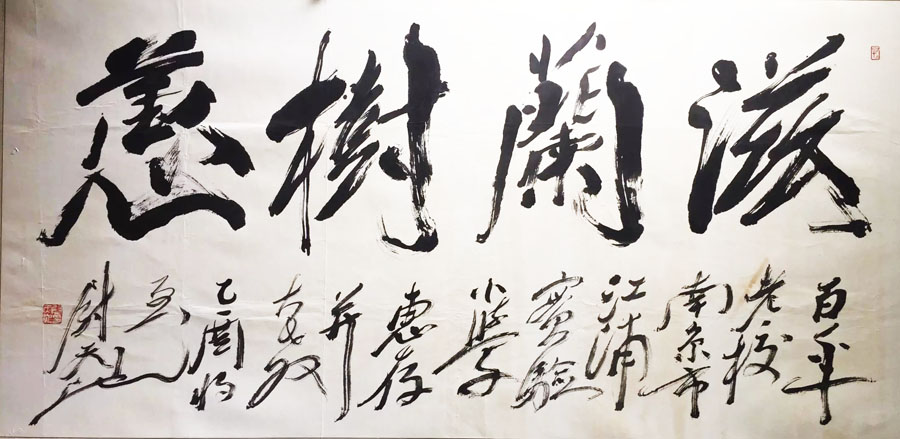 滋蘭樹蕙
百年
老校
南京市
江浦
實驗
小學
惠存
并
乙酉
尉天池